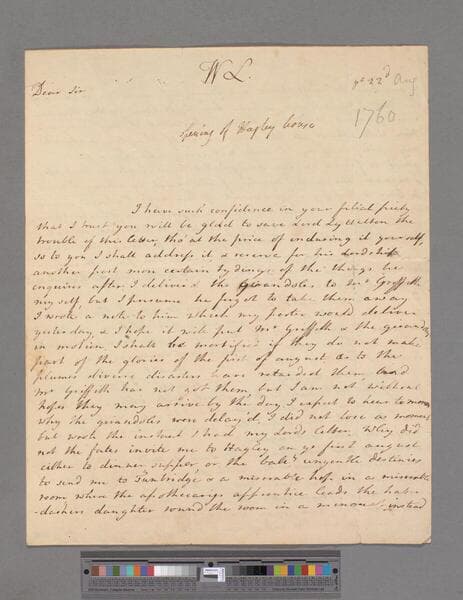 W L.
Dear Sir
ye 22d Aug
1760
opening of Hagley house
I have such confidence in your filial piety
that I trust you will be glad to save Lord Lyttelton the
trouble of this letter tho' at the price of inclosing it yourself,
so to you I shall address it & reserve for his Lordship
another post more certain tydings of the things he
enquires after. I deliver'd the Girandoles to Mr Griffith
myself, but I presume he forgot to take them away
I wrote a note to him which my porter would deliver
yesterday, & I hope it will put Mr Griffith & the girandoles
in motion. I shall be mortified if they do not make
part of the glories of the first of august as to the
plumes divine disasters have retarded them and
Mr Griffith has not got them but I am not without
hopes they may arrive by the day I expect to hear to morrow
why the grandoles were delay'd, I did not lose a moment
but wrote the instant I had my Lords letter. Why did
not the fates invite me to Hagley on ye first august
either to dinner supper or the ball? ungentle destinies
to send me to Tunbridge to a miserable hop in a miserable
room where the apothecarys apprentice leads the haber
-dashers daughter round the room in a minuet, instead